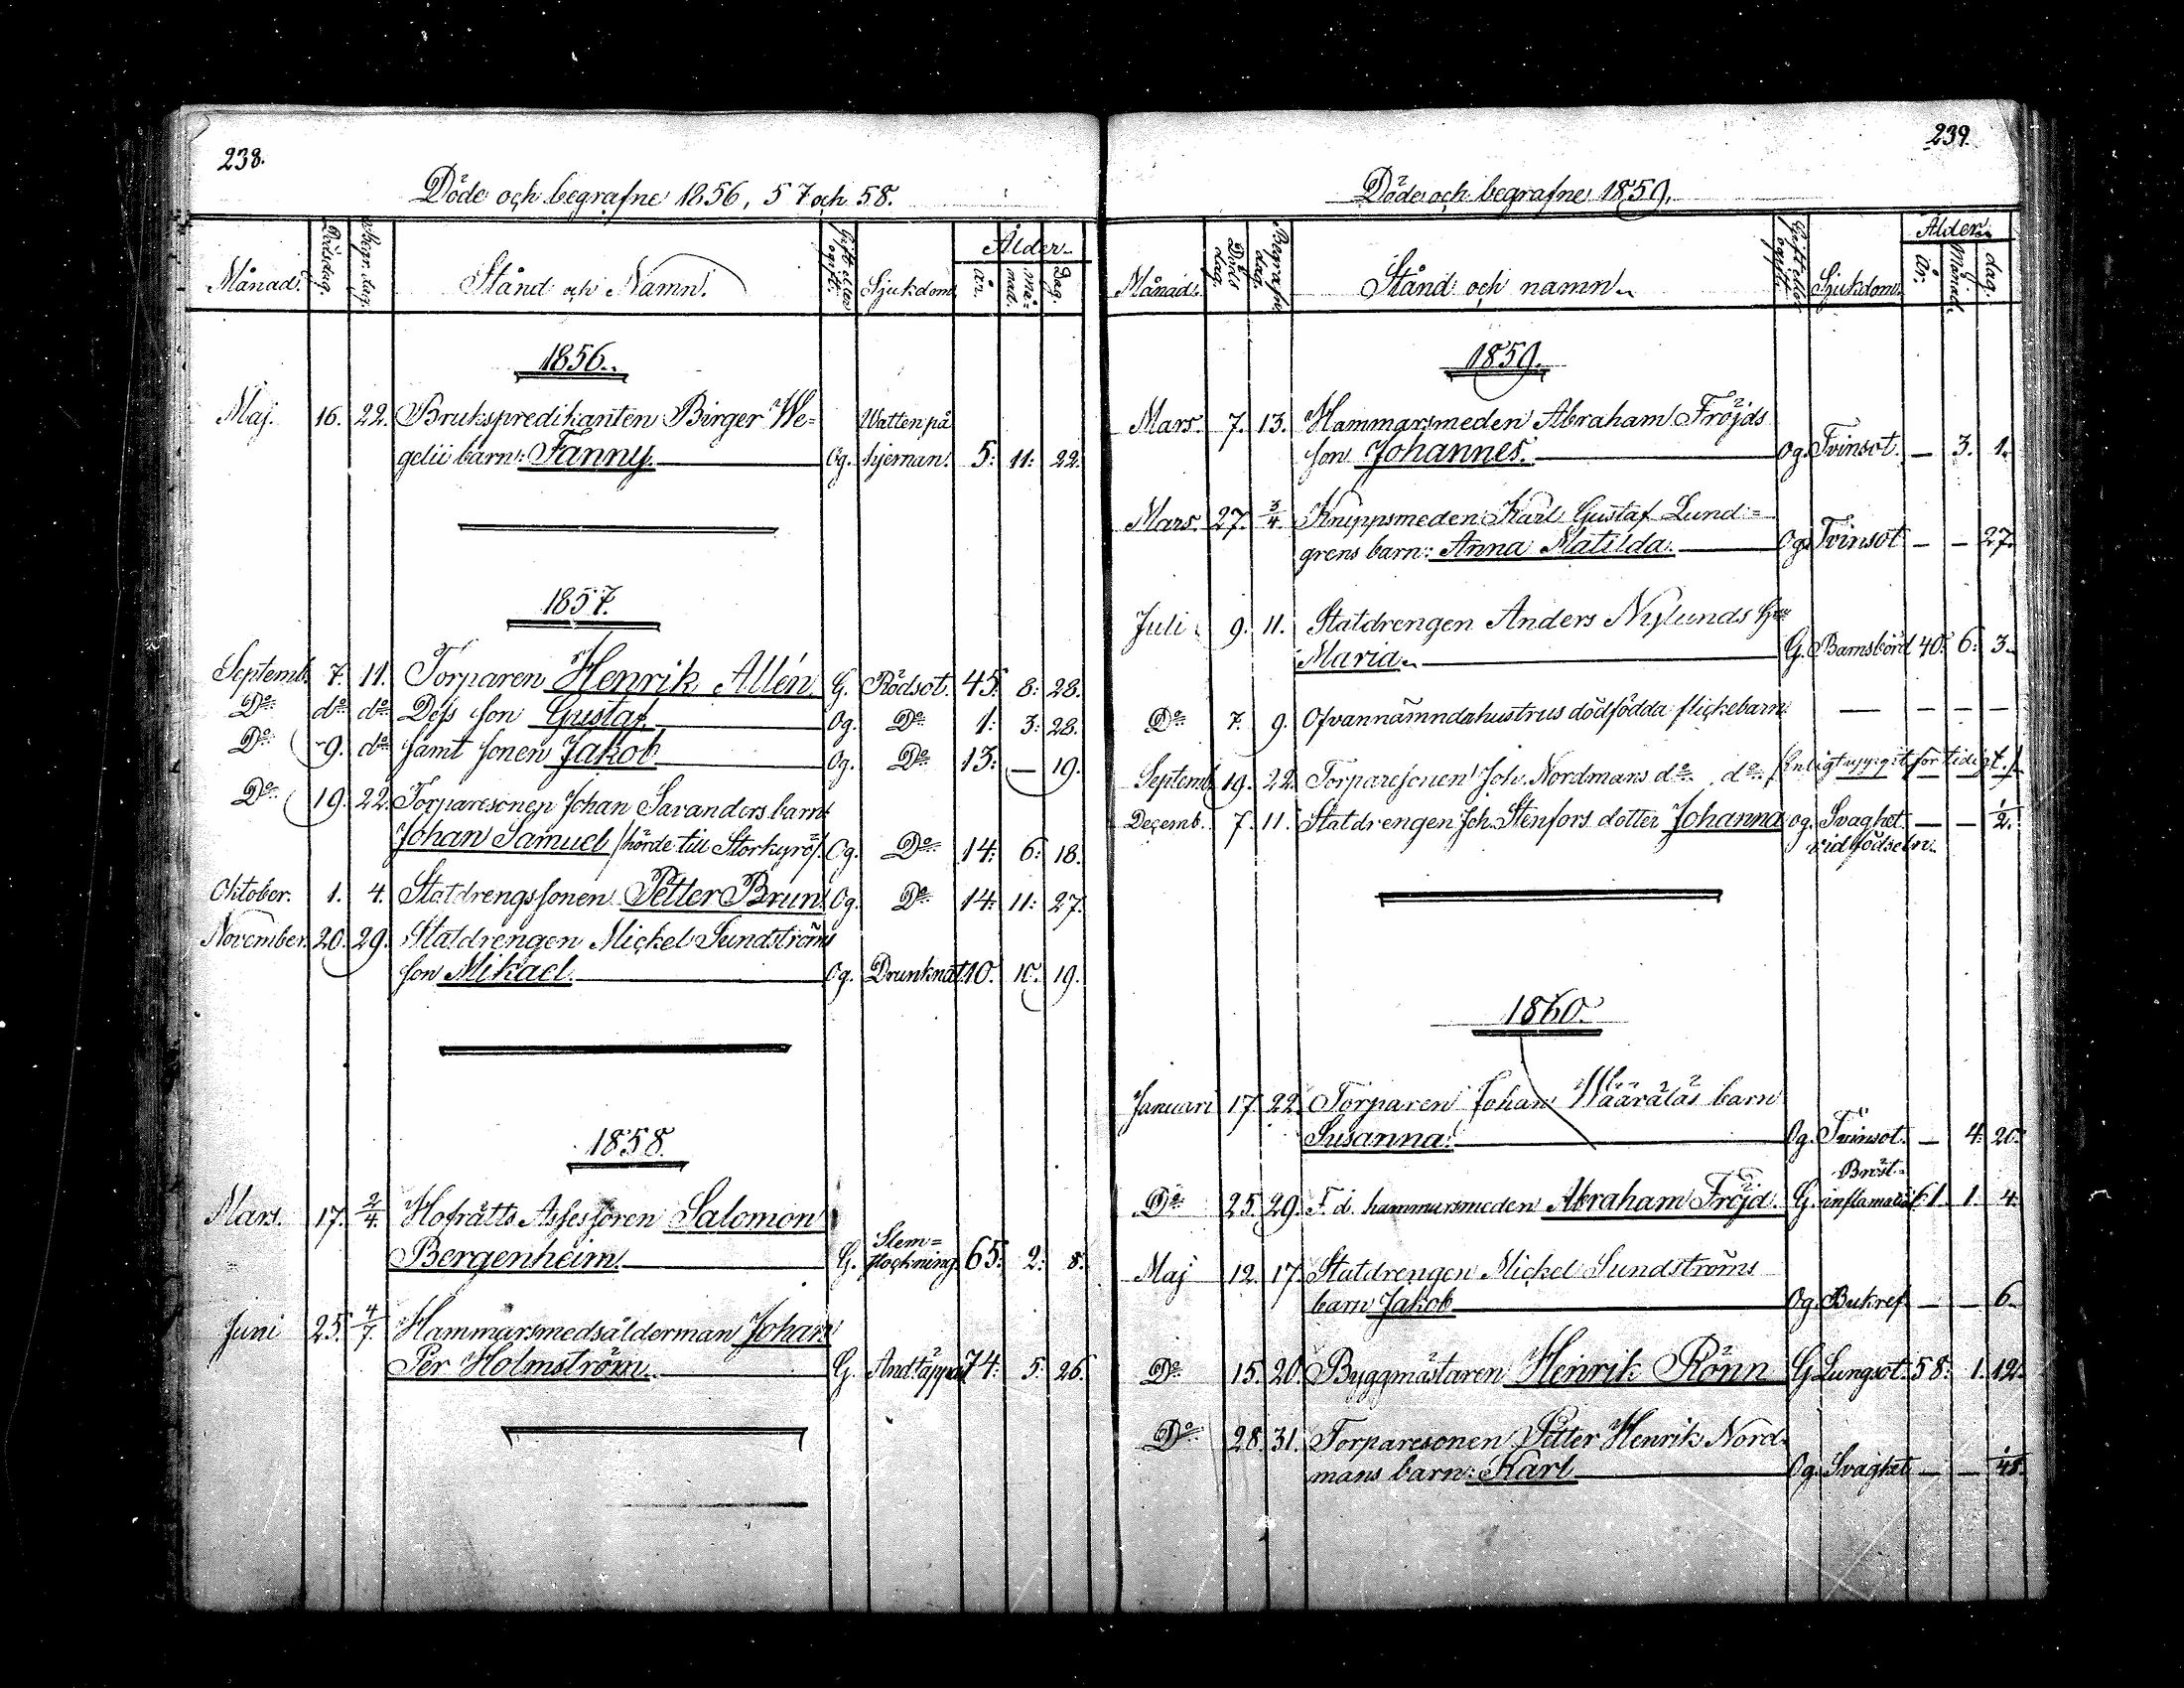 238.
Döde och begrafne 1856, 57 och 58.
Månad. Dödsdag. Begr. dag. Stånd och Namn. Gift eller ogift. Sjukdom. Ålder.
år. månad. Dag.
1856.
Maj. 16. 22. Brukspredikanten Birger We= Watten på
gelii barn: Fanny. Og. hjernan. 5: 11: 22.
1857.
Septemb. 7. 11. Torparen Henrik Allén G. Rödsot. 45: 8: 28.
Do do do Dess son Gustaf Og. Do 1: 3: 28.
Do 9. do samt sonen Jakob Og. Do 13: — 19.
Do 19. 22. Torparesonen Johan Savanders barn
Johan Samuel /hörde till Storkyrö/. Og. Do 14: 6: 18.
Oktober. 1. 4. Statdrengssonen Petter Brun. Og. Do 14: 11: 27.
November. 20. 29. Statdrengen Mickel Sundströms
son Mikael. Og. Drunknat. 10. 10. 19.
1858.
Mars. 17. 2/4. Hofrätts Assessoren Salomon
Bergenheim. G. Slem=
flockning. 65: 2: 8.
Juni 25. 4/7. Hammarsmedsålderman Johan
Per Holmström. G. Andtäppa 74: 5: 26.
239.
Döde och begrafne 1859.
Månad. Döds dag. Begrafn. dag. Stånd och namn. Gift eller ogift. Sjukdom. Ålder.
År. Månad. dag.
1859.
Mars. 7. 13. Hammarsmeden Abraham Fröjds
son Johannes. Og. Tvinsot. — 3. 1.
Mars. 27. 3/4. Knippsmeden Karl Gustaf Lund=
grens barn: Anna Matilda. Og. Tvinsot — — 27.
Juli 9. 11. Statdrengen Anders Nylunds Hu
Maria. G. Barnsbörd 40: 6: 3.
Do 7. 9. Ofvannämnda hustrus dödfödda flickebarn — — — —
Septemb. 19. 22. Torparesonen Joh. Nordmans do do /enligt uppgift för tidigt./
Decemb. 7. 11. Statdrengen Joh. Stenfors dotter Johanna og. Svaghet — — 1/2.
vid födseln.
1860.
Januari 17. 22. Torparen Johan Määräläs barn
Susanna. Og. Tvinsot. — 4: 20.
Do 25. 29. F. d. hammarsmeden Abraham Fröjd. G. Bröst=
inflamation 61. 1. 4.
Maj 12. 17. Statdrengen Mickel Sundströms
barn Jakob Og. Bukref. — — 6.
Do 15. 20. Byggmästaren Henrik Rönn G. Lungsot. 58: 1. 12.
Do 28. 31. Torparesonen Petter Henrik Nord=
mans barn: Karl Og. Svaghet — — 1/48.